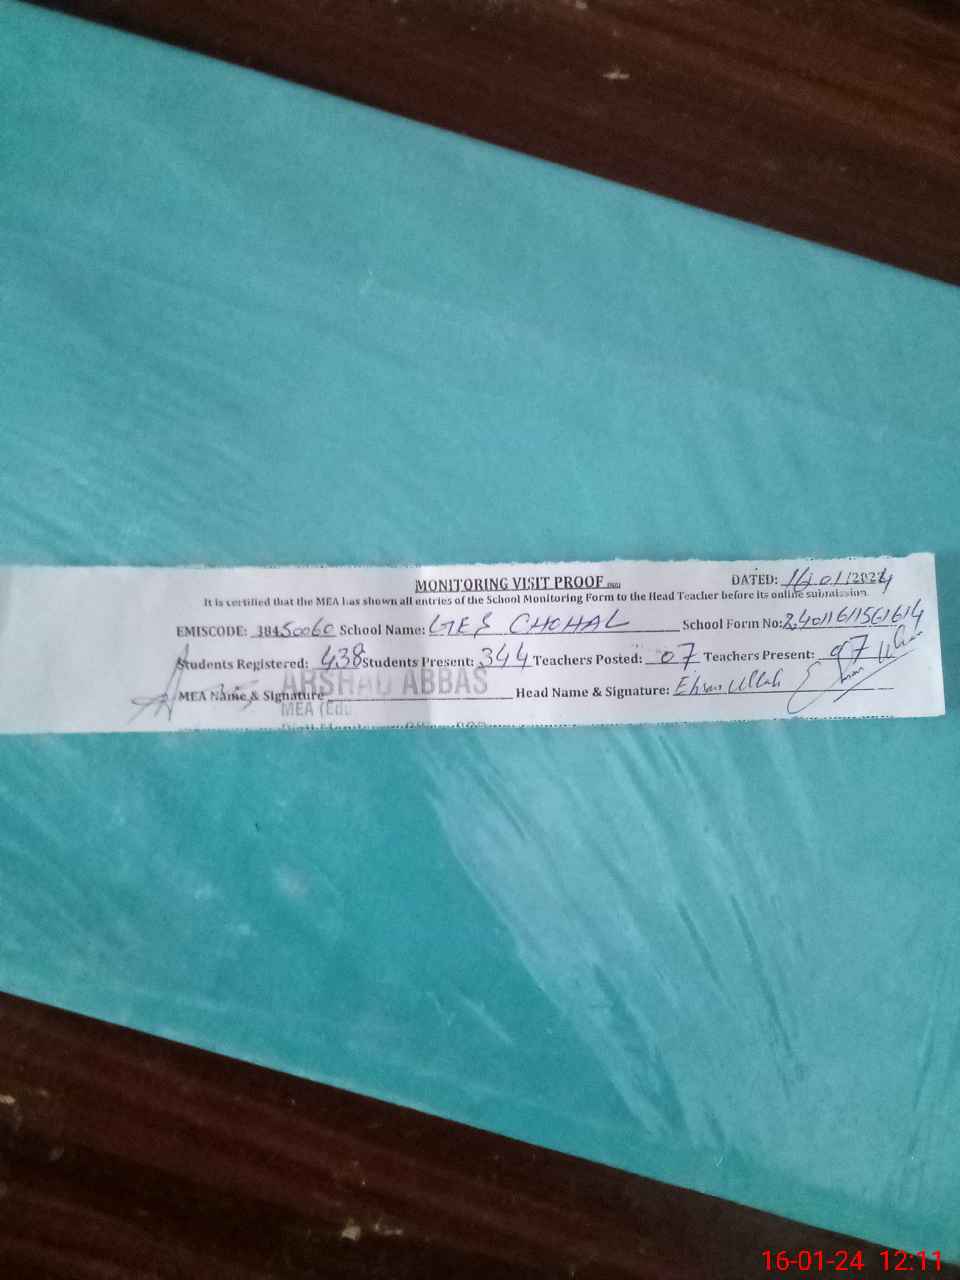 MONITORING VISIT PROOF
DATED: 16/01/2024
It is certified that the MEA has shown all entries of the School Monitoring Form to the Head Teacher before its online submission.
EMISCODE: 38450060 School Name: GES CHOHAL School Form No: 2401161561614
Students Registered: 438 Students Present: 344 Teachers Posted: 07 Teachers Present: 07
ARSHAD ABBAS
MEA Name & Signature Head Name & Signature: Ehsan Ullah
MEA (Edu
16-01-24 12:11